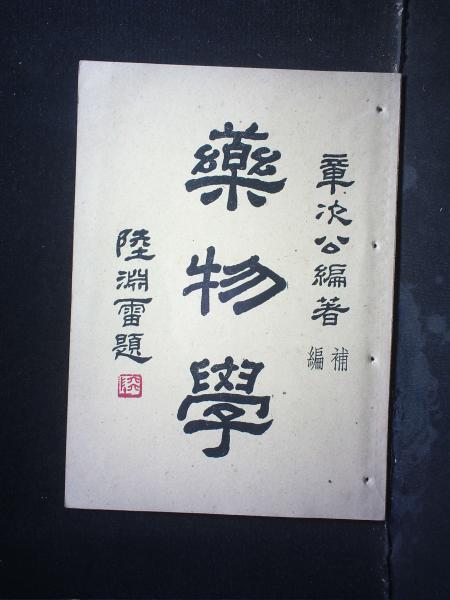 章次公編著
補編
藥物學
陸淵雷題